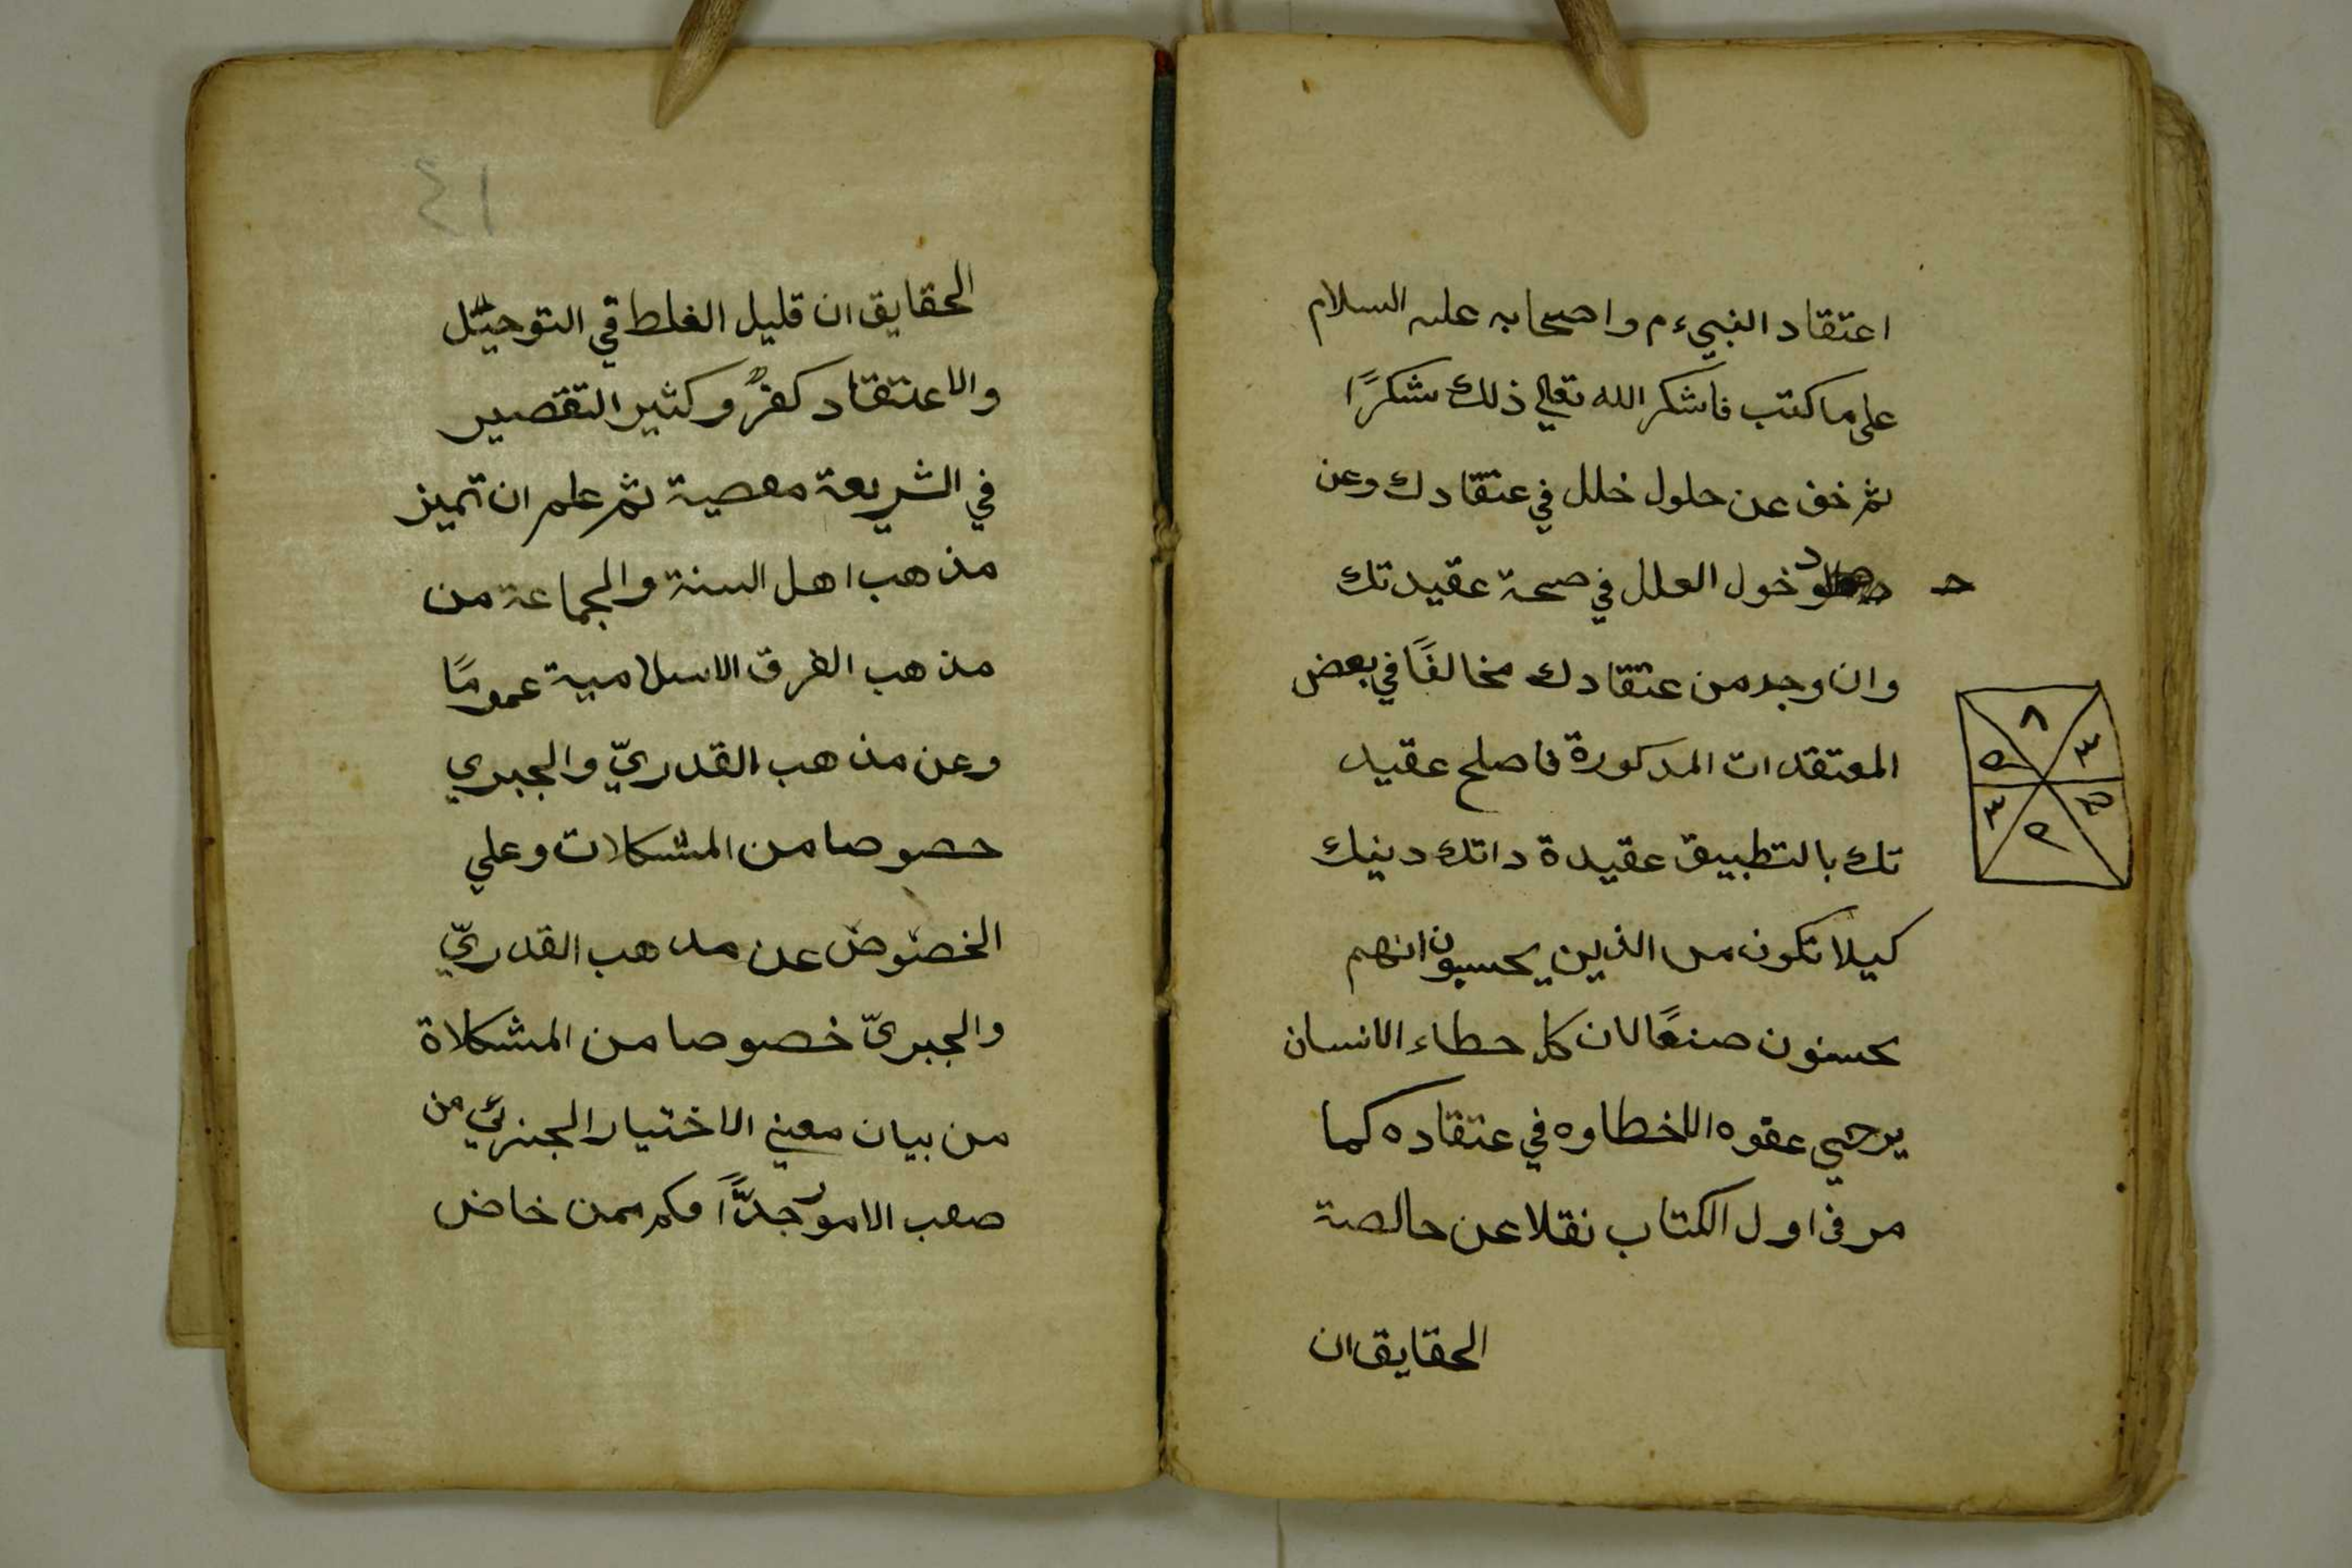 اعتقاد النبيءم واصحابه عليه السلام
على ما كتب فاشكر الله تعالى ذلك شكرًا
ثم خف عن حلول خلل في عتقادك وعن
دخول العلل في صحة عقيدتك
وان وجد من عتقادك مخالفًا في بعض
المعتقدات المدكورة فاصلح عقيد
تك بالتطبيق عقيدة داتك دينك
كيلا تكون من الذين يحسبون انهم
يحسنون صنعًا لان كل حطاء الانسان
يرجي عقوه الاخطاوه في عتقاده كما
مر في اول الكتاب نقلا عن حالصة
الحقايق ان
٨
٣
٥
٣
٢
٤١
الحقايق ان قليل الغلط في التوحيد
والاعتقاد كفرٌ وكثير التقصير
في الشريعة معصية ثم علم ان تميز
مذهب اهل السنة والجماعة من
مذهب الفرق الاسلامية عمومًا
وعن مذهب القدريّ والجبري
حصوصا من المشكلات وعلي
الخصوص عن مدهب القدريّ
والجبريّ خصوصا من المشكلاة
من بيان معني الاختيار الجزئي من
صعب الامور جدًّا فكم ممن خاض